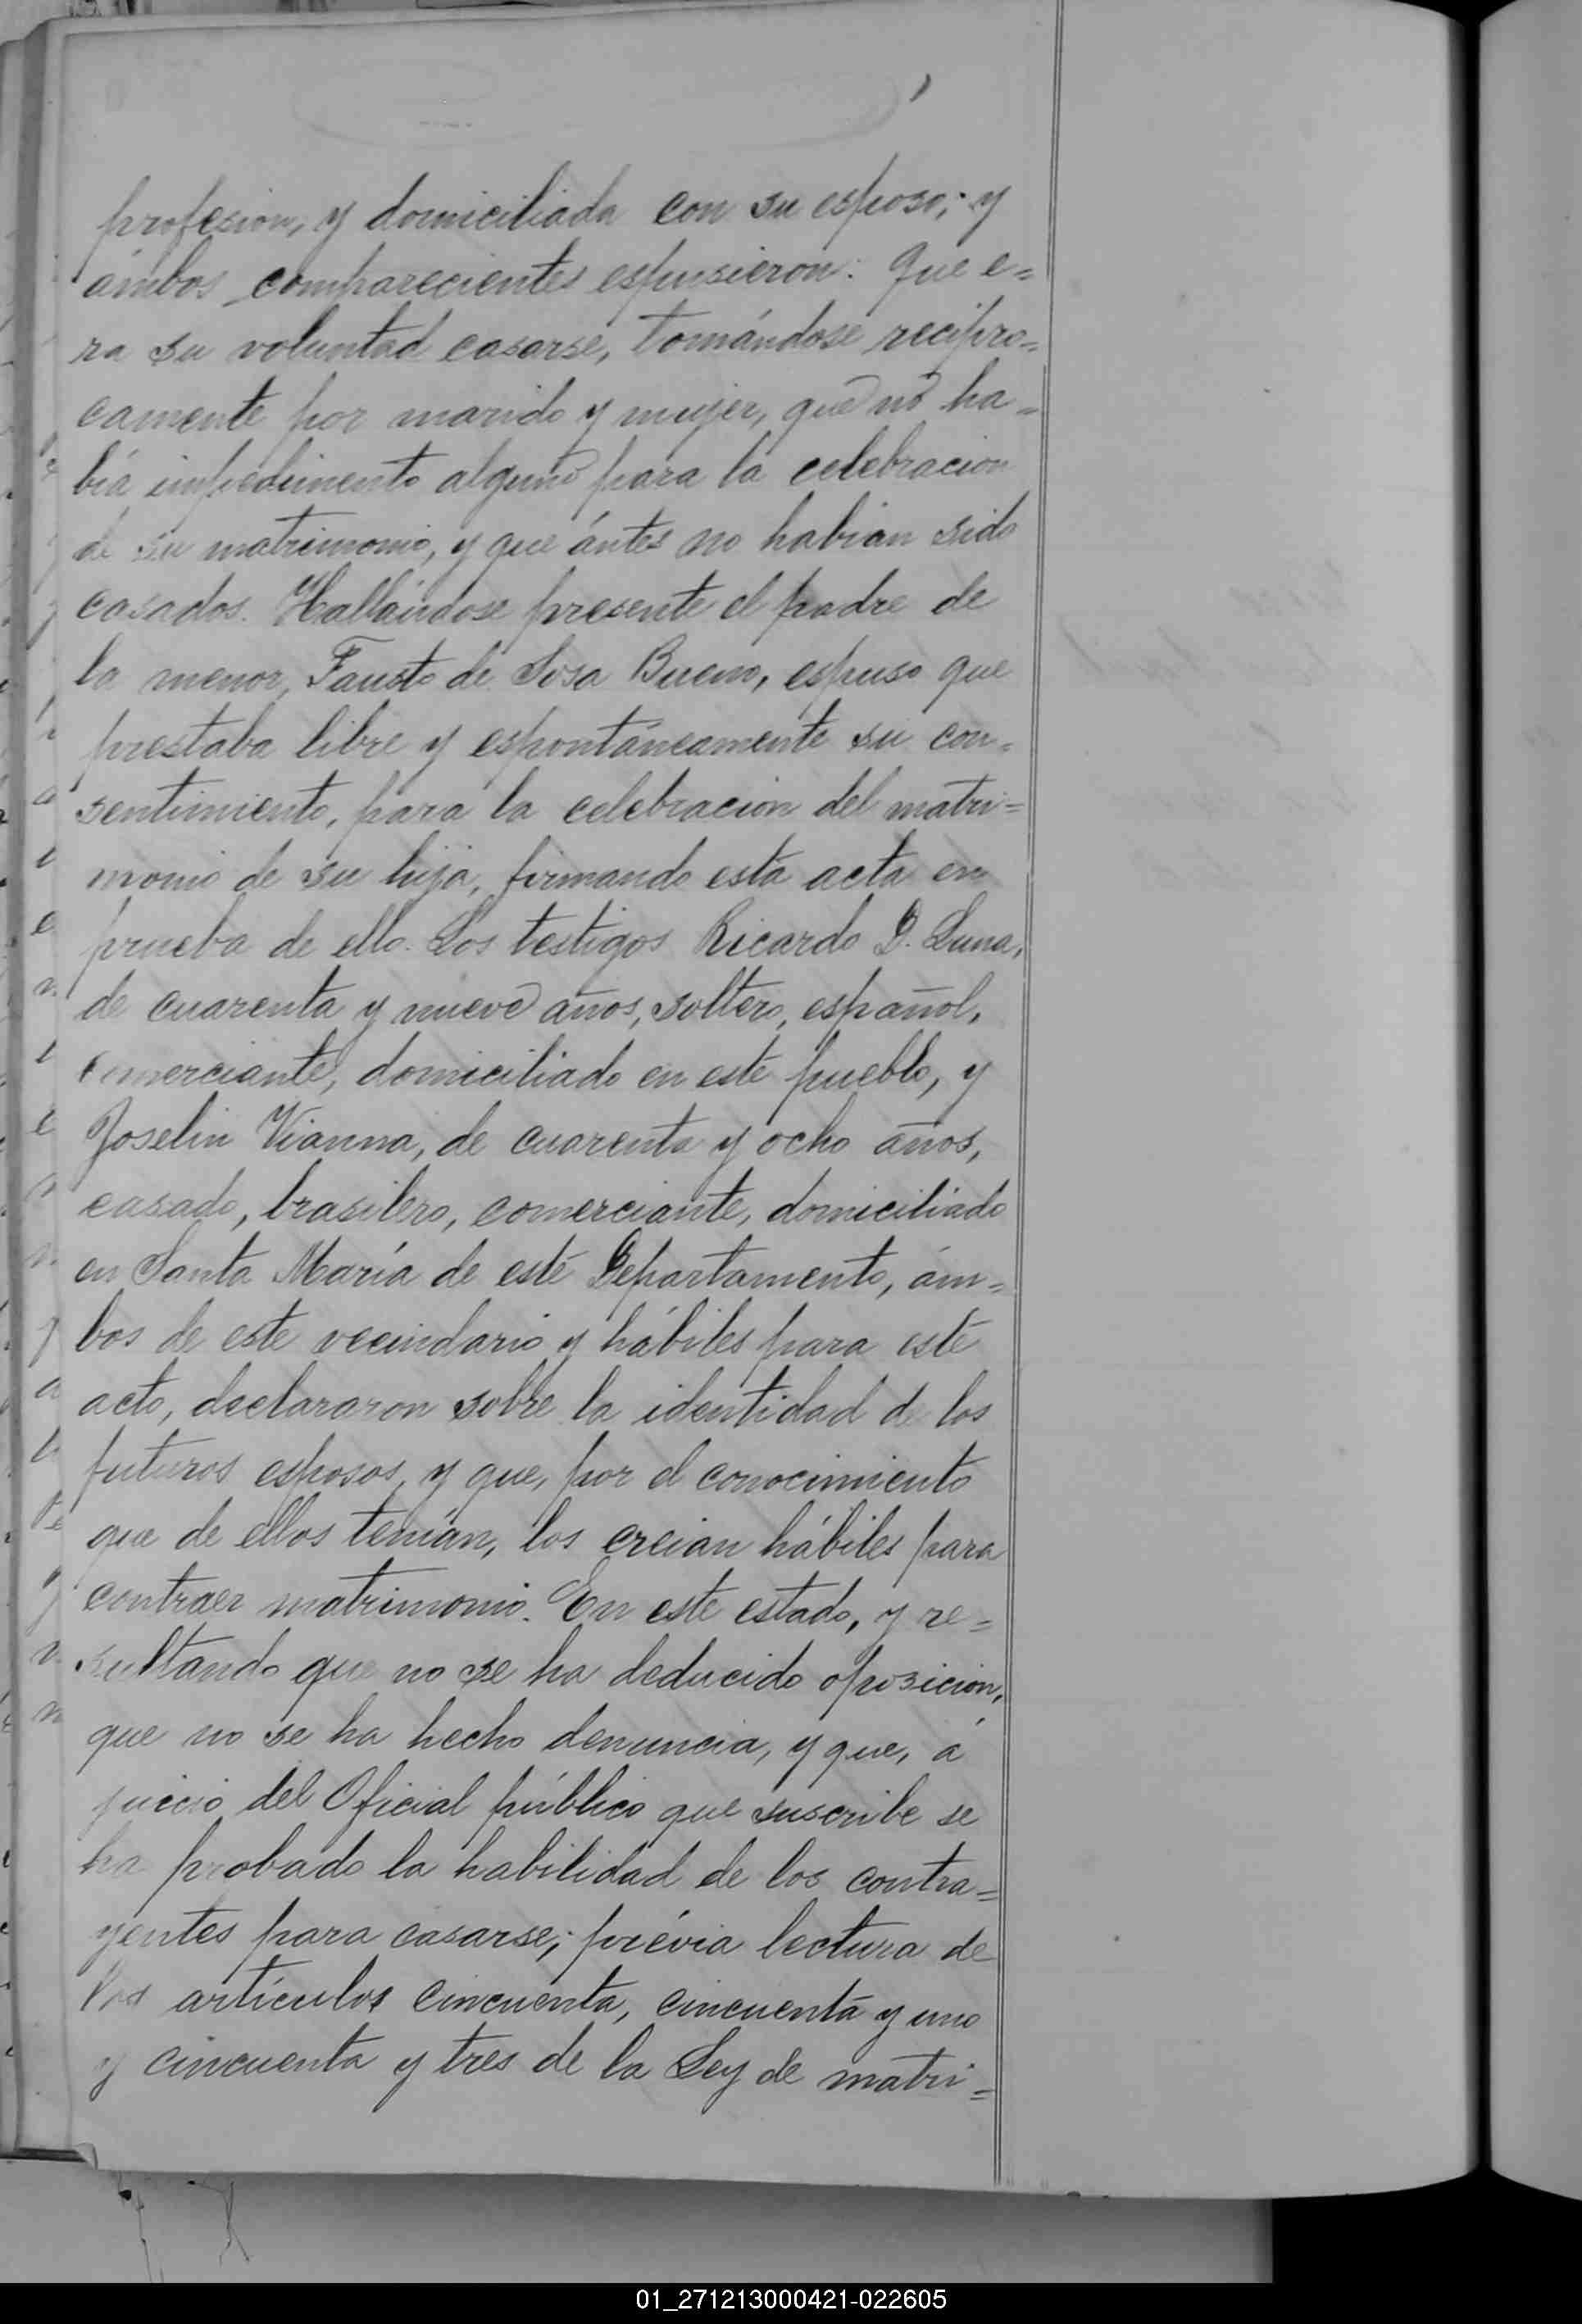 profesion, y domiciliada con su esposo; y
ámbos comparecientes espusieron: Que e=
ra su voluntad casarse, tomándose recipro=
camente por marido y mujer, que no ha=
bía impedimento alguno para la celebracion
de su matrimonio, y que ántes no habian sido
casados. Hallándose presente el padre de
la menor, Fausto de Sosa Bueno, espuso que
prestaba libre y espontáneamente su con=
sentimiento, para la celebracion del matri=
monio de su hija, firmando esta acta en
prueba de ello. Los testigos Ricardo D. Luna,
de cuarenta y nueve años, soltero, español,
comerciante, domiciliado en este pueblo, y
Joselin Vianna, de cuarenta y ocho años,
casado, brasilero, comerciante, domiciliado
en Santa María de este Departamento, ám=
bos de este vecindario y hábiles para este
acto, declararon sobre la identidad de los
futuros esposos, y que, por el conocimiento
que de ellos tenían, los creian hábiles para
contraer matrimonio. En este estado, y re=
sultando que no se ha deducido oposicion,
que no se ha hecho denuncia, y que, á
juicio del Oficial público que suscribe se
ha probado la habilidad de los contra=
yentes para casarse; prévia lectura de
los artículos cincuenta, cincuenta y uno
y cincuenta y tres de la Ley de matri=
01_271213000421-022605